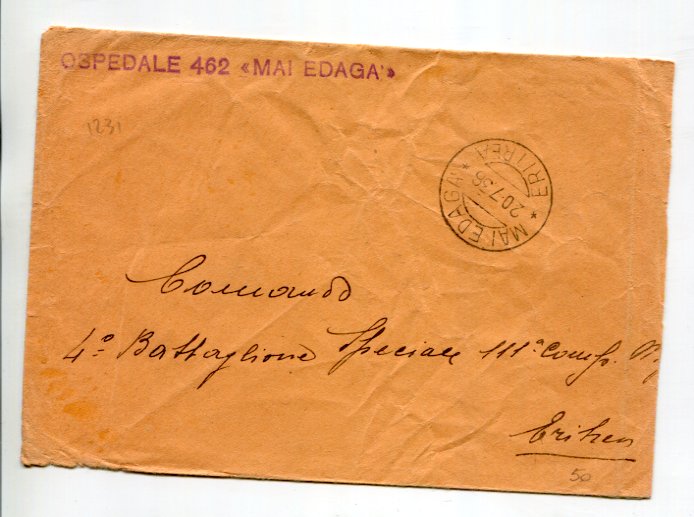 OSPEDALE 462 «MAI EDAGA'»
1231
MAI EDAGA
20.7.36
ERITREA
Comando
4° Battaglione Speciale 111ª Comp.
Eritrea
50